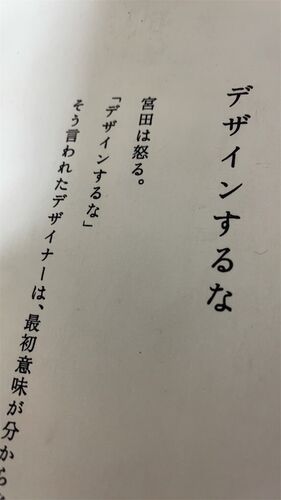 デザインするな
宮田は怒る。
「デザインするな」
そう言われたデザイナーは、最初意味が分から